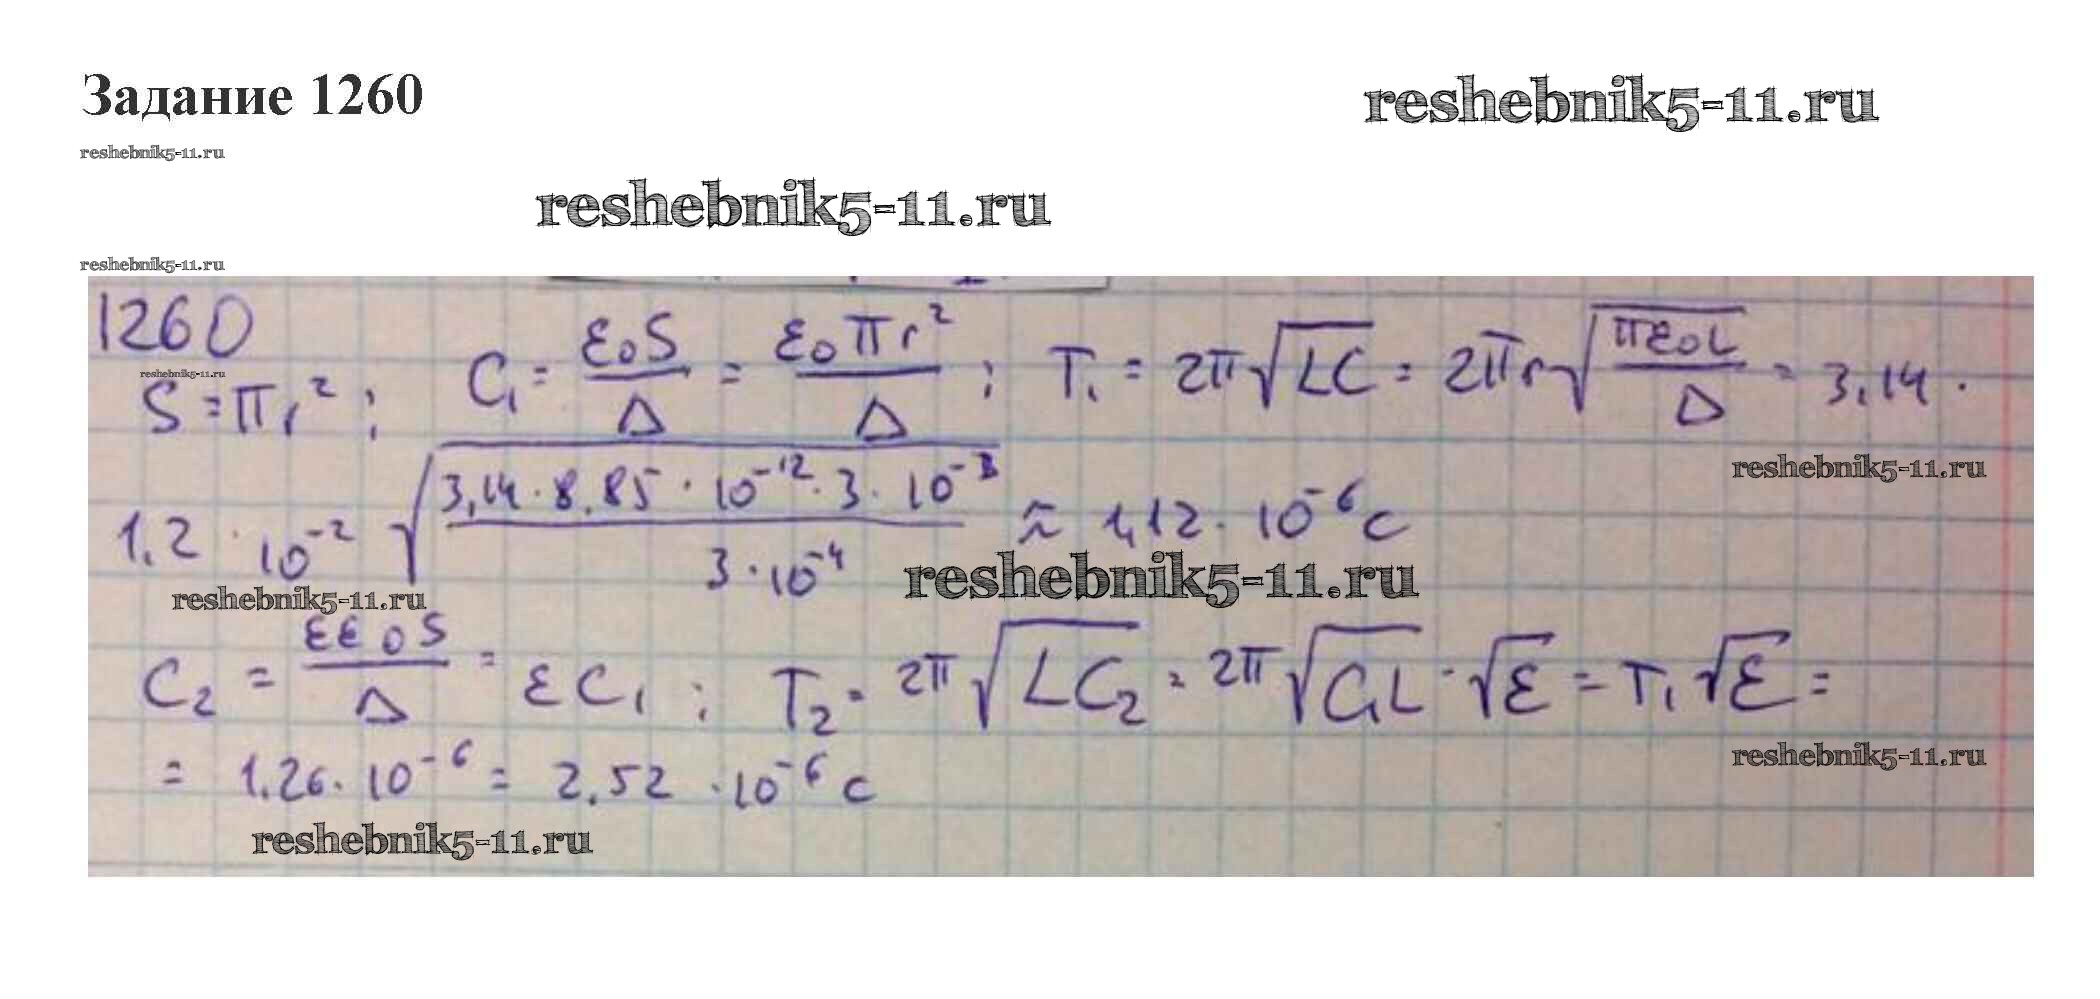 Задание 1260
reshebnik5-11.ru
reshebnik5-11.ru
reshebnik5-11.ru
reshebnik5-11.ru
1260
reshebnik5-11.ru
S = πr²; C₁ = ε₀S/Δ = ε₀πr²/Δ; T₁ = 2π√LC = 2πr√(πε₀L/Δ) = 3,14 ·
reshebnik5-11.ru
1,2 · 10⁻² √(3,14 · 8,85 · 10⁻¹² · 3 · 10⁻³ / 3 · 10⁻⁴) ≈ 1,12 · 10⁻⁶ с
reshebnik5-11.ru
reshebnik5-11.ru
C₂ = εε₀S/Δ = εC₁; T₂ = 2π√LC₂ = 2π√C₁L · √ε = T₁√ε =
reshebnik5-11.ru
= 1,26 · 10⁻⁶ = 2,52 · 10⁻⁶ с
reshebnik5-11.ru